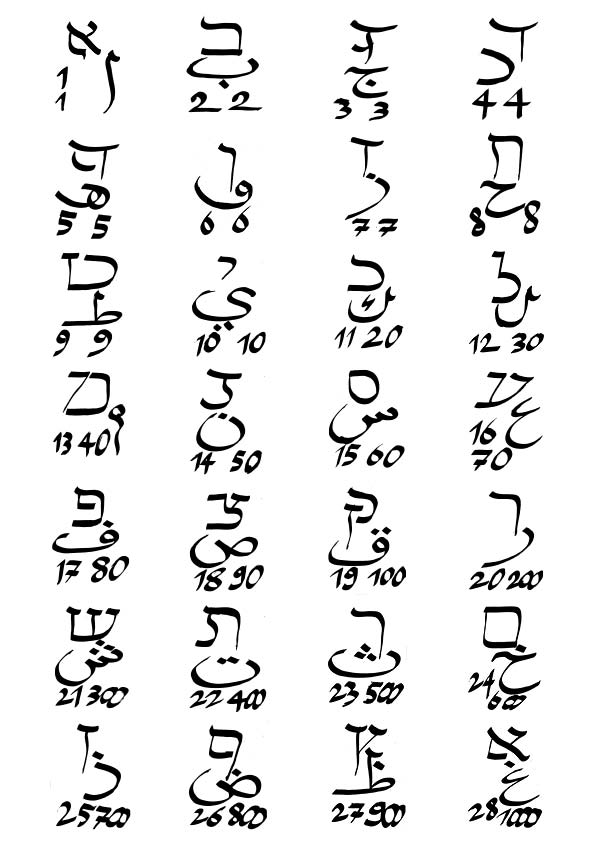 א ב ג ד
ا ب ج د
1 1 2 2 3 3 4 4
ה ו ז ח
ه و ز ح
5 5 6 6 7 7 8 8
ט י כ ל
ط ي ك ل
9 9 10 10 11 20 12 30
מ נ ס ע
م ن س ع
13 40 14 50 15 60 16 70
פ צ ק ר
ف ص ق ر
17 80 18 90 19 100 20 200
ש ת ך ם
ش ت ث خ
21 300 22 400 23 500 24 600
ן ף ץ א
ذ ض ظ غ
25 700 26 800 27 900 28 1000